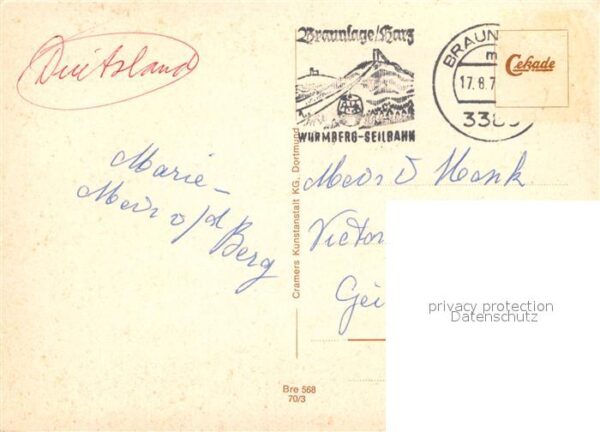 Duitsland
Braunlage/Harz
WURMBERG-SEILBAHN
BRAUN
17.8.7
338
Cekade
Marie-
Berg
Cramers Kunstanstalt KG, Dortmund
Victor
Gei
privacy protection
Datenschutz
Bre 568
70/3